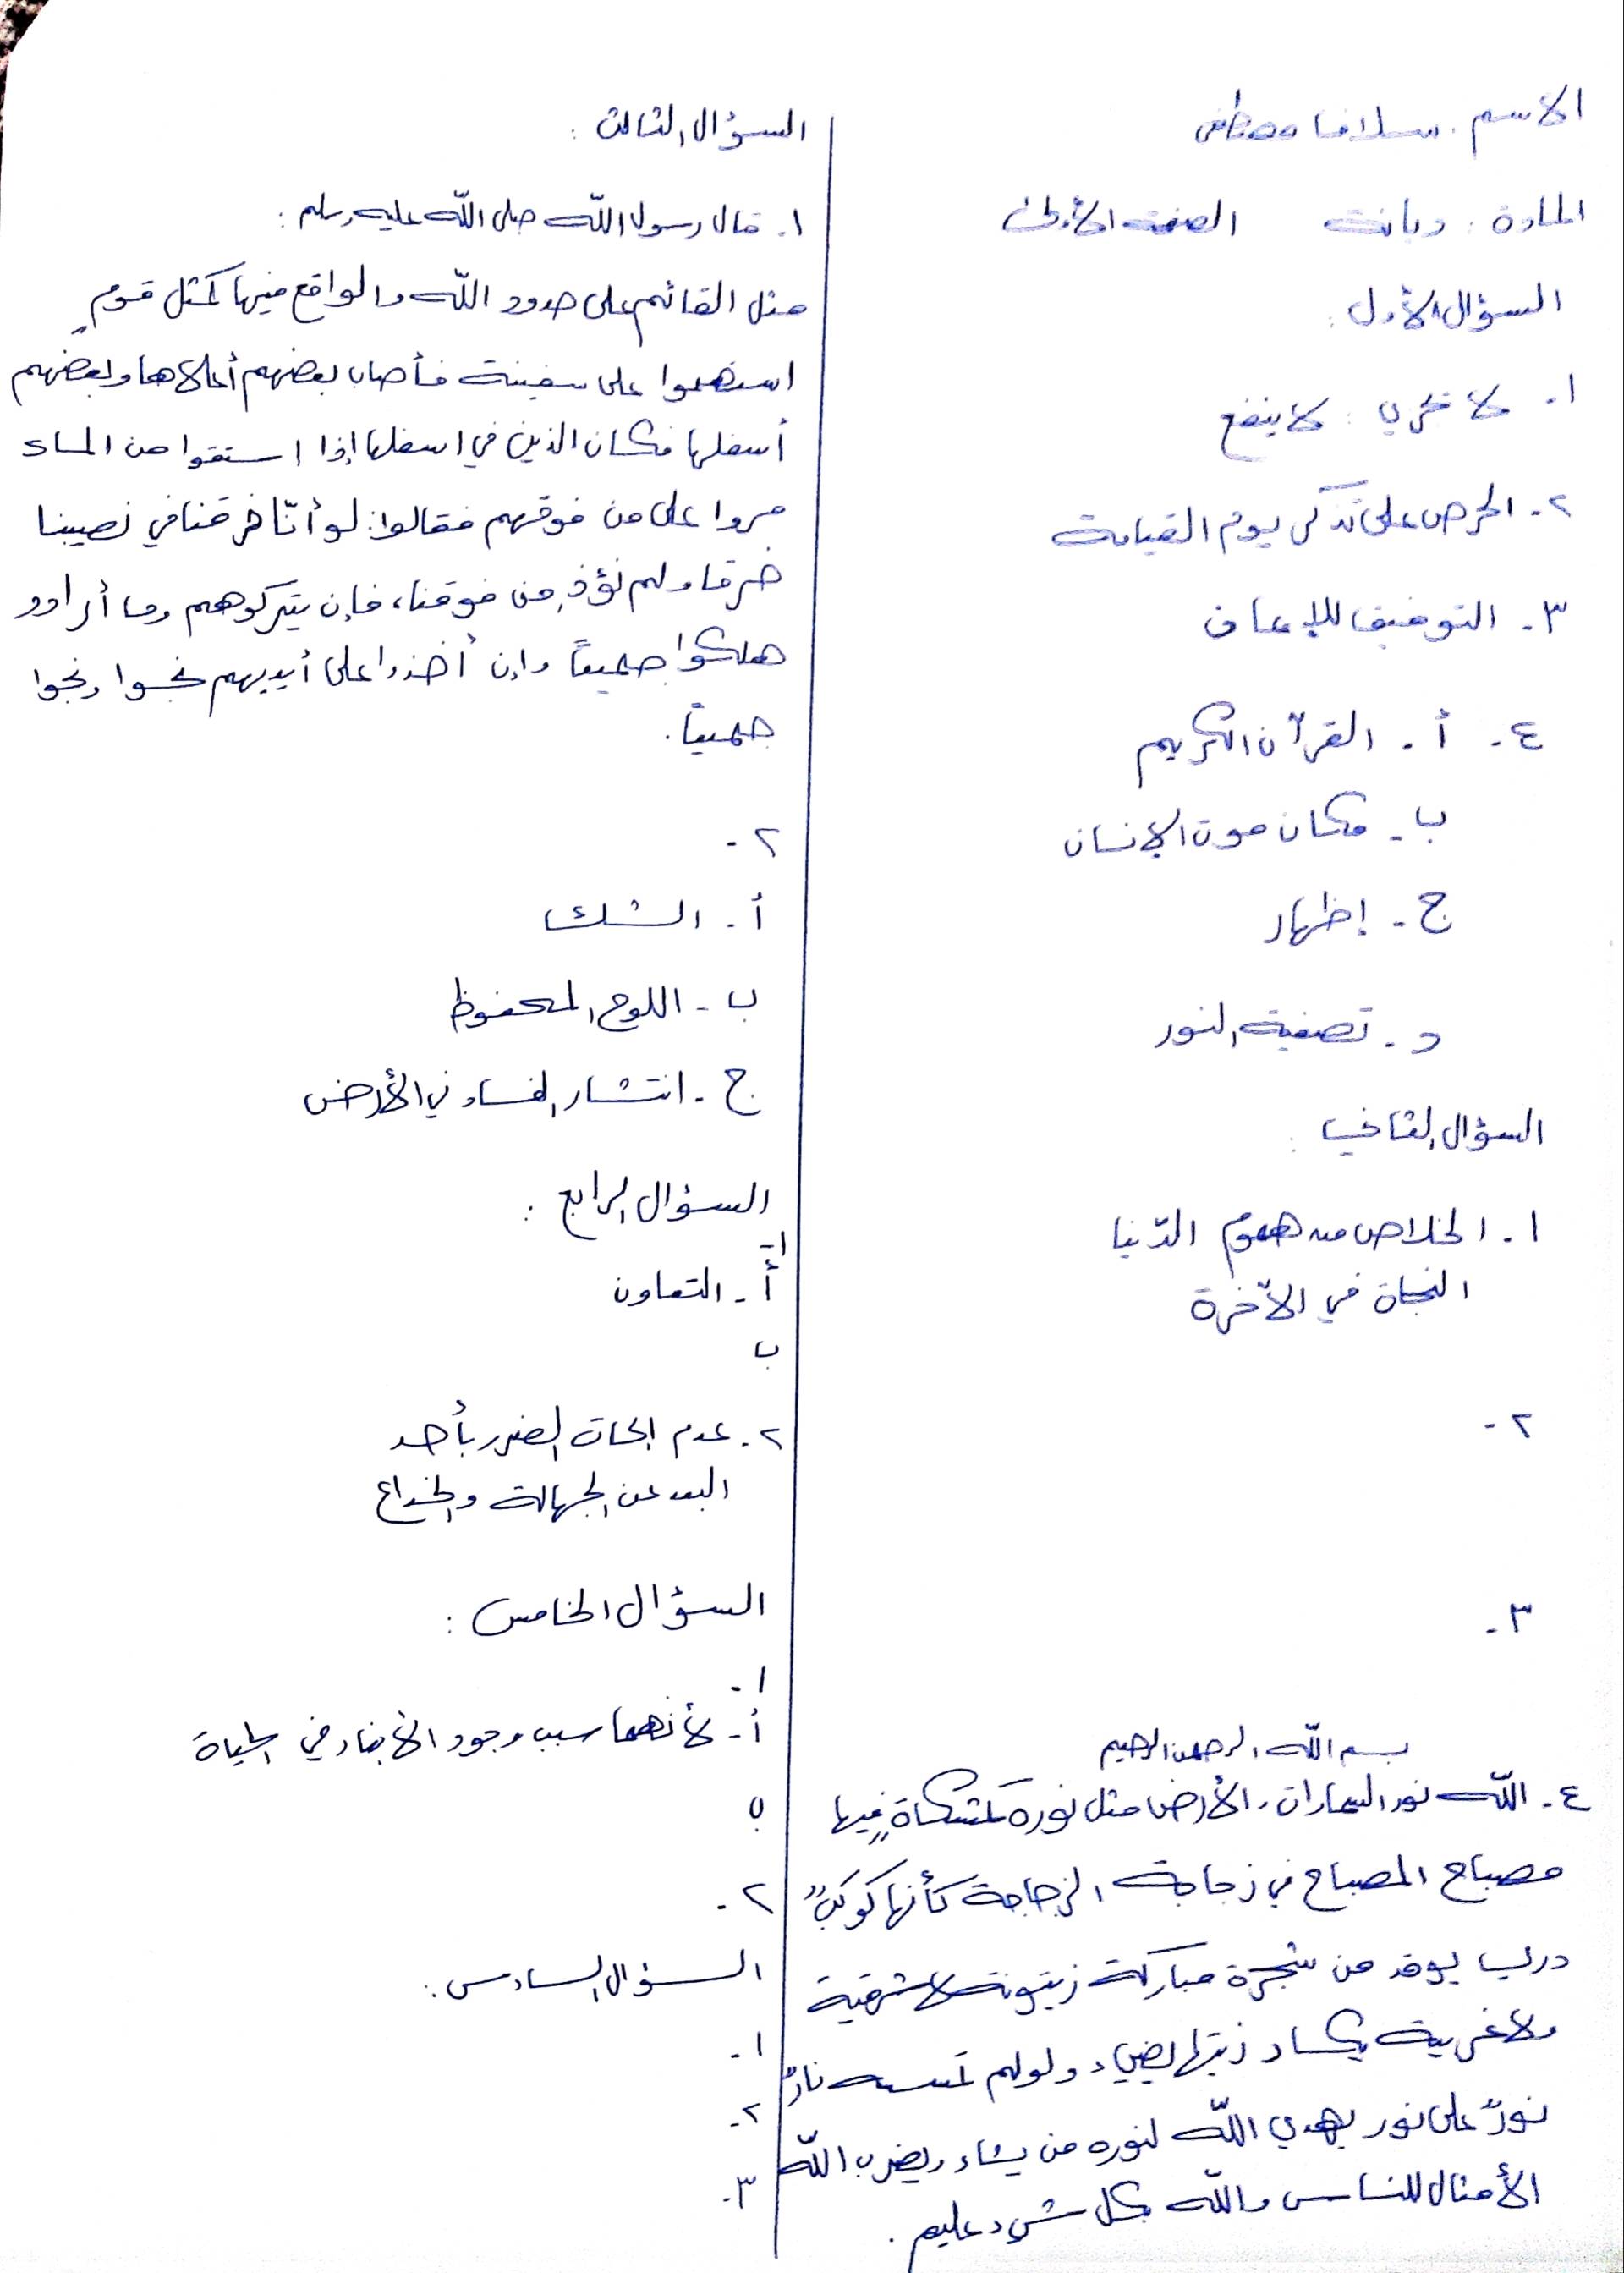 الاسم . سلافا مصطفى
المادة : ديانة الصف الأول
السؤال الأول :
١. لا تجزي : لا ينفع
٢. الحرص على تذكر يوم القيامة
٣. التوفيق للإيمان
٤. أ. القرآن الكريم
ب. مكان موت الإنسان
ج. إظهار
د. تصفية النور
السؤال الثاني :
١. الخلاص من هموم الدّنيا
النجاة في الآخرة
٢.
٣.
بسم اللّه الرحمن الرحيم
٤. اللّه نور السماوات والأرض مثل نوره كمشكاةٍ فيها
مصباح المصباح في زجاجة الزجاجة كأنها كوكبٌ
دري يوقد من شجرة مباركة زيتونة لا شرقية
ولا غربية يكاد زيتها يضيء ولو لم تمسسه نارٌ
نورٌ على نور يهدي اللّه لنوره من يشاء ويضرب اللّه
الأمثال للناس واللّه بكل شيء عليم .
السؤال الثالث :
١. قال رسول اللّه صلى اللّه عليه وسلم :
مثل القائم على حدود اللّه والواقع فيها كمثل قومٍ
استهموا على سفينة فأصاب بعضهم أعلاها وبعضهم
أسفلها فكان الذين في اسفلها إذا استقوا من الماء
مروا على من فوقهم فقالوا: لو أنّا خرقنا في نصيبنا
خرقا ولم نؤذِ من فوقنا، فإن يتركوهم وما أرادو
هلكوا جميعًا وإن أخذوا على أيديهم نجوا ونجوا
جميعًا.
٢.
أ. الشك
ب. اللوح المحفوظ
ج. انتشار الفساد في الأرض
السؤال الرابع :
١-
أ. التعاون
ب
٢. عدم الحاق الضرر بأحد
البعد عن الجهالة والخداع
السؤال الخامس :
١.
أ. لأنهما سبب وجود الأبناء في الحياة
ب
٢.
السؤال السادس :
١.
٢.
٣.